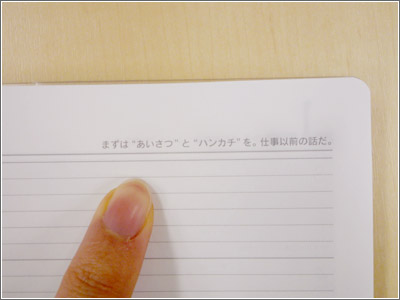 まずは“あいさつ”と“ハンカチ”を。仕事以前の話だ。